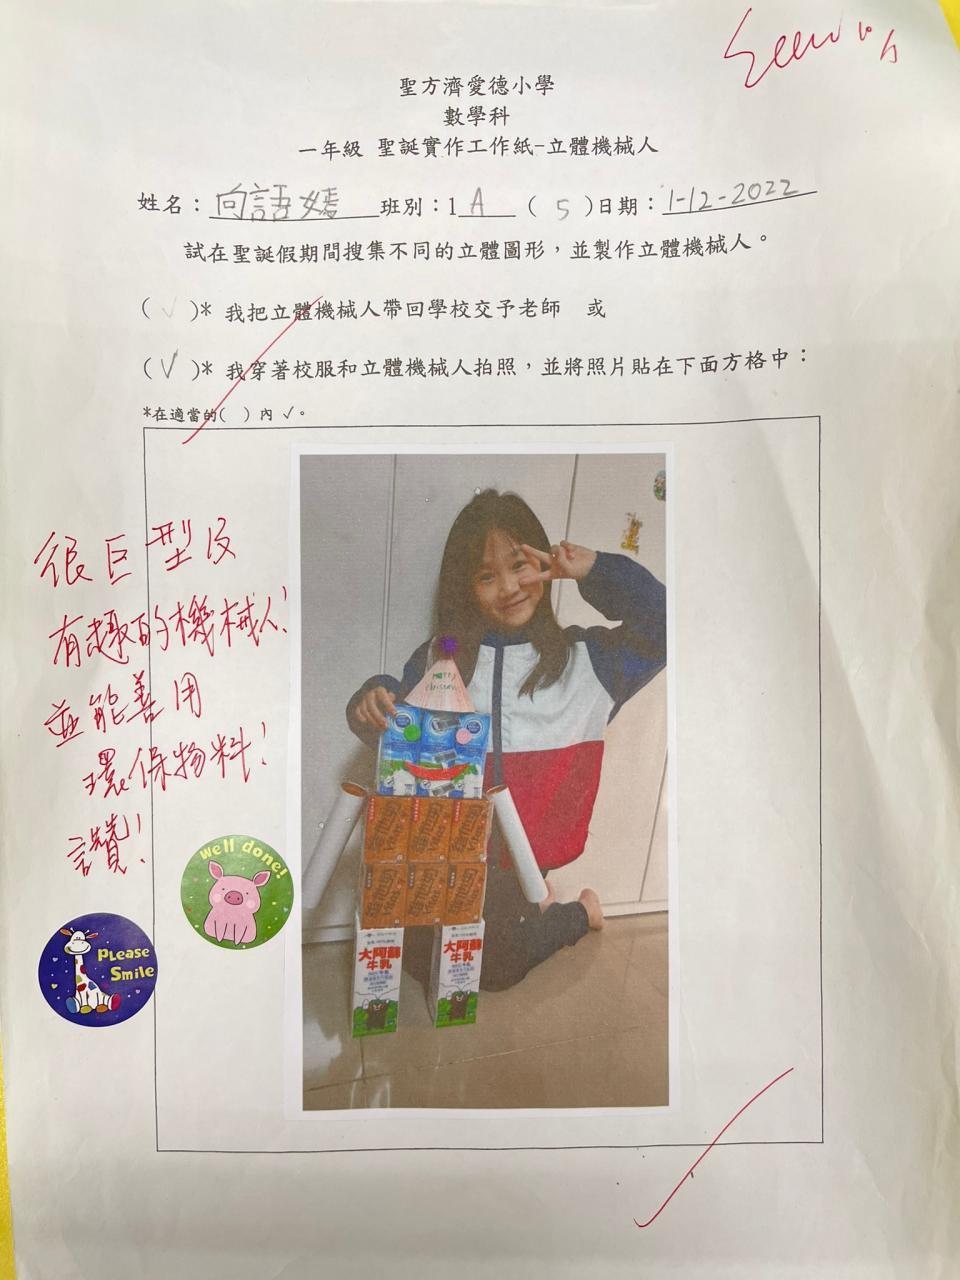 Seen 10分
聖方濟愛德小學
數學科
一年級 聖誕實作工作紙-立體機械人
姓名：向語嫣 班別：1 A ( 5 )日期：1-12-2022
試在聖誕假期間搜集不同的立體圖形，並製作立體機械人。
( ✓ )* 我把立體機械人帶回學校交予老師 或
( ✓ )* 我穿著校服和立體機械人拍照，並將照片貼在下面方格中：
*在適當的( ) 內 ✓。
很巨型及
有趣的機械人！
並能善用
環保物料！
讚！
Well done!
Please
Smile
Merry
大阿蘇
牛乳
大阿蘇
牛乳